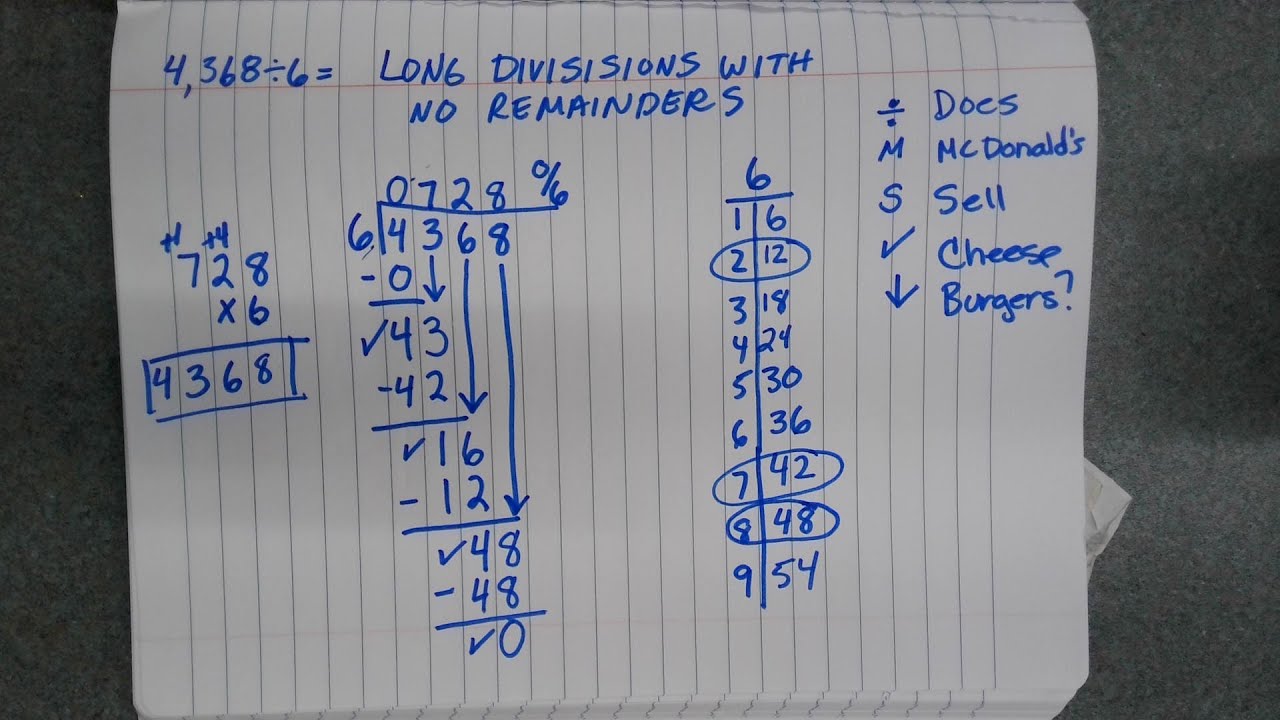 4,368÷6= LONG DIVISISIONS WITH
NO REMAINDERS
÷ Does
M McDonald's
S Sell
✓ Cheese
↓ Burgers?
0728 0/6
6 4368
-0
✓43
-42
✓16
-12
✓48
-48
✓0
+1 +4
728
x6
4368
6
1 6
2 12
3 18
4 24
5 30
6 36
7 42
8 48
9 54